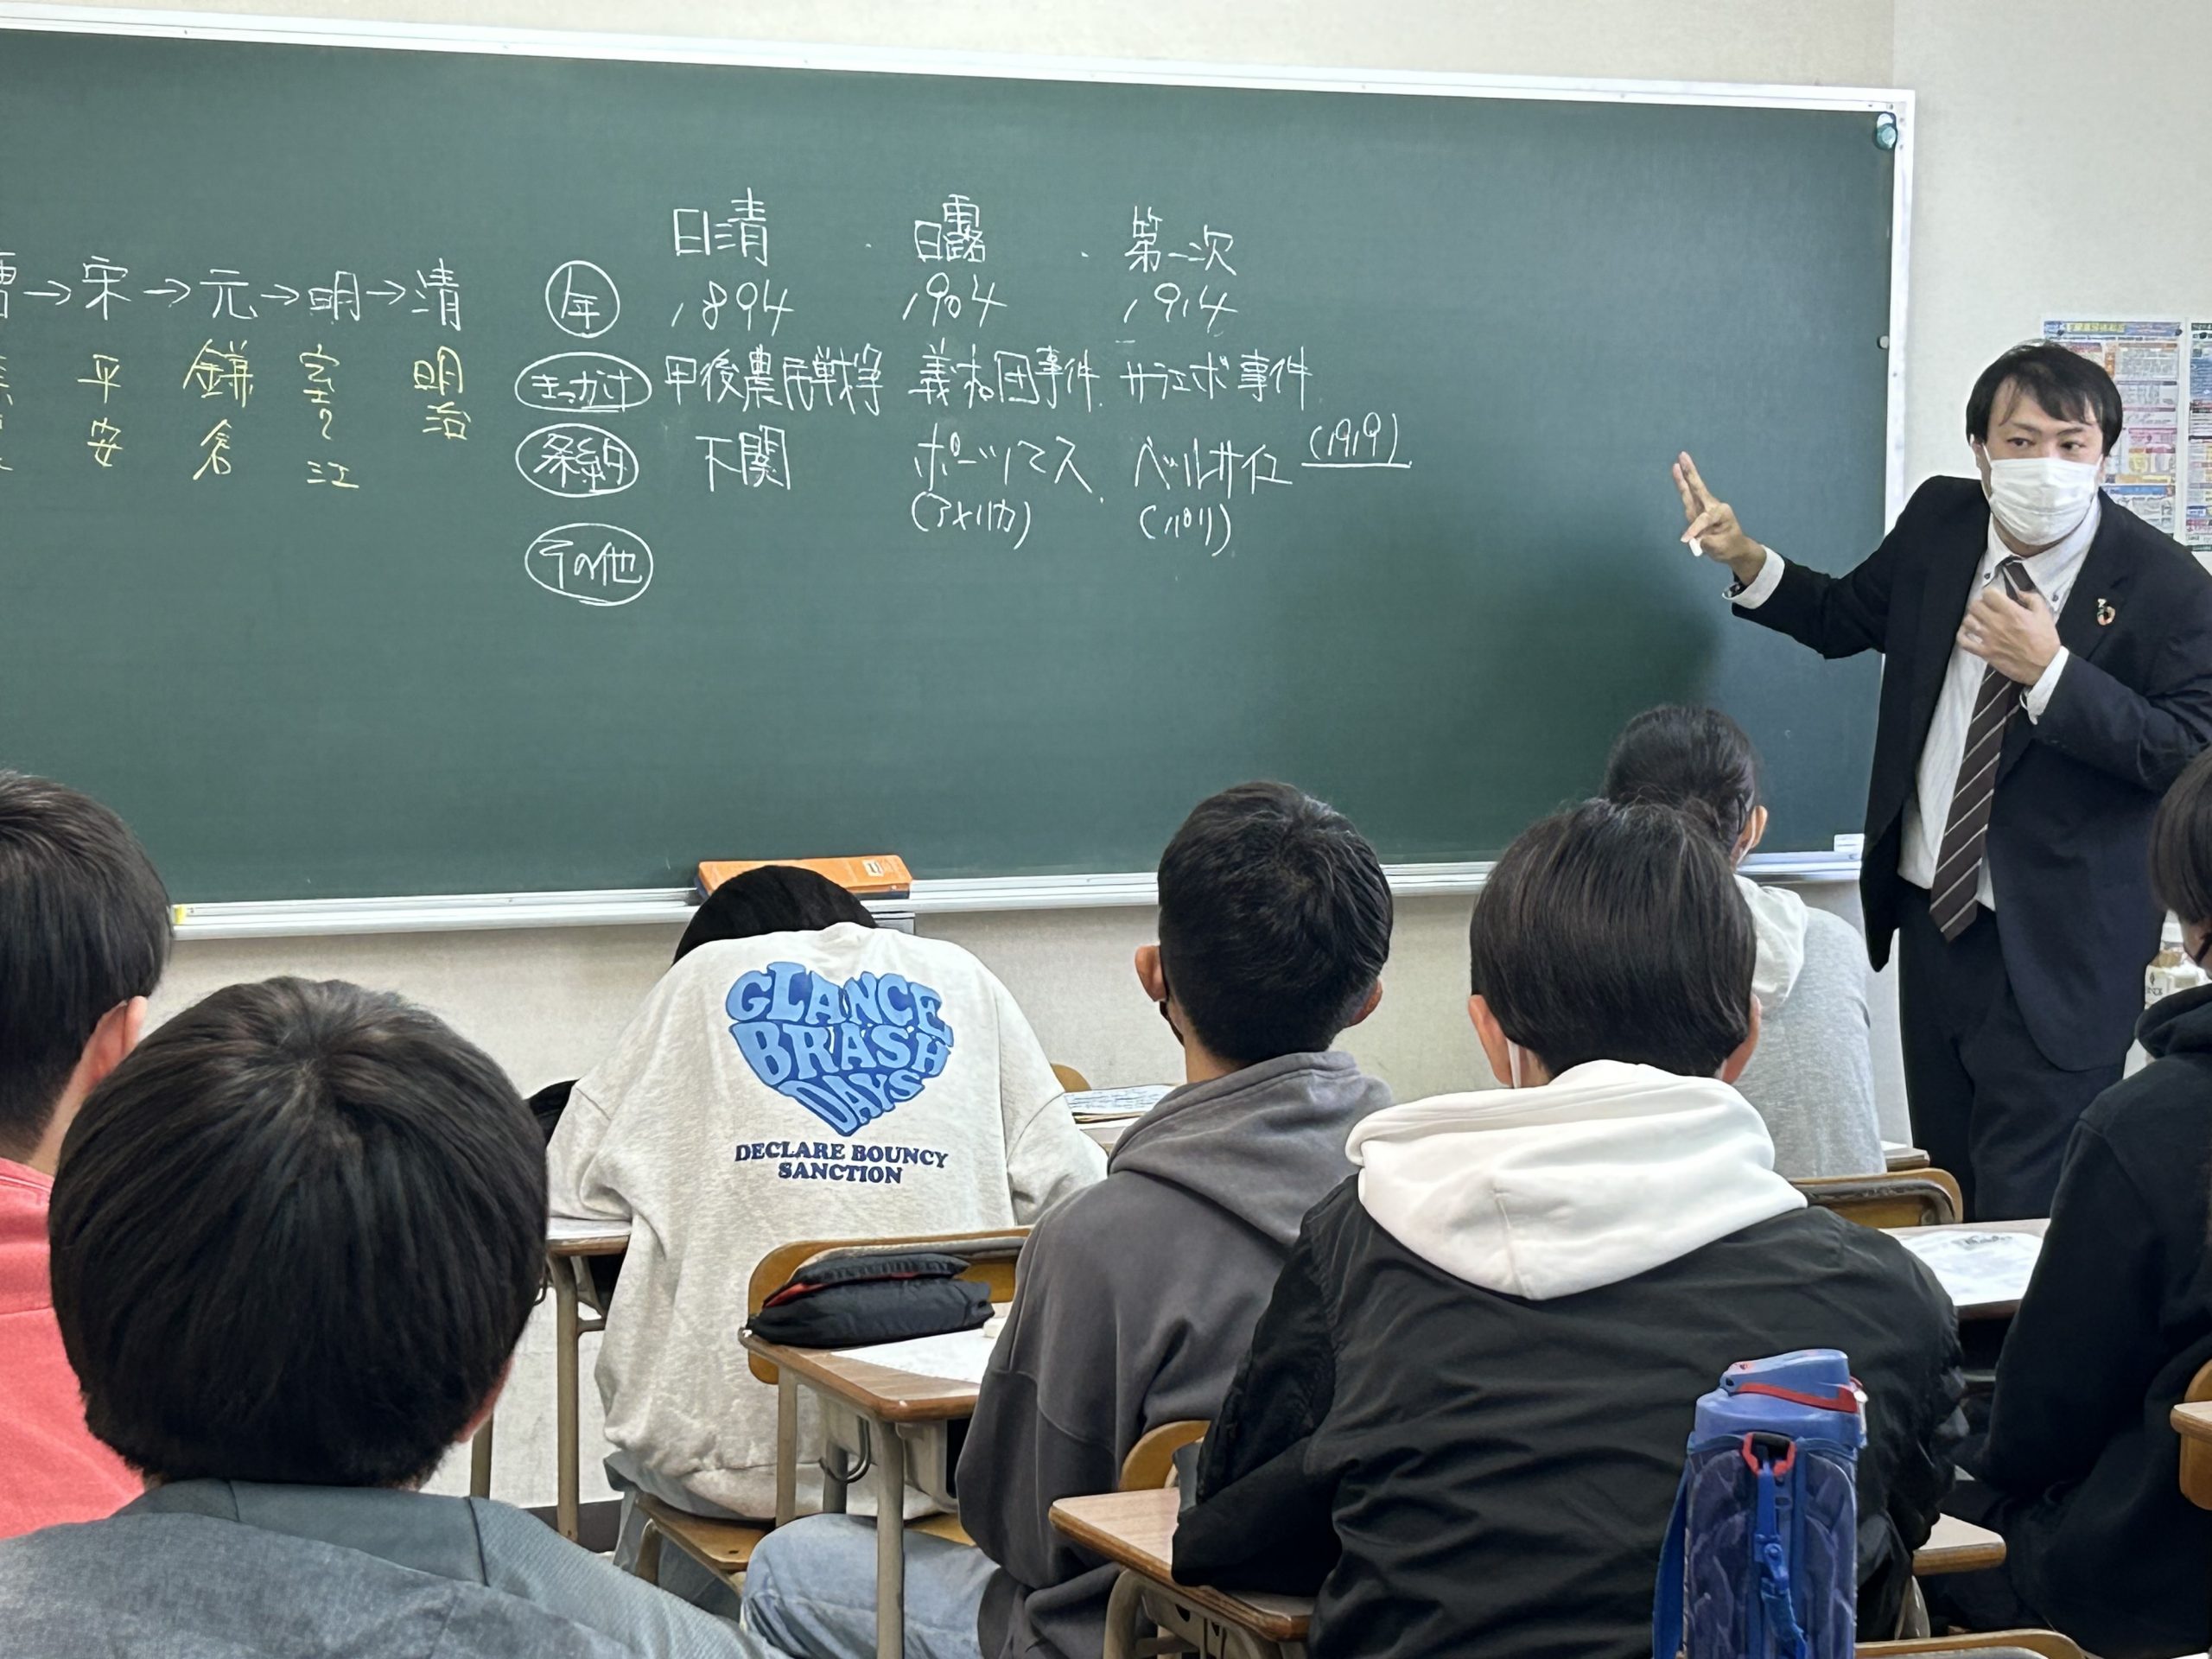 →宋→元→明→清
平安
鎌倉
室町〜江
明治
日清・日露・第一次
年 1894 1904 1914
きっかけ 甲後農民戦争 義和団事件 サラエボ事件
条約 下関 ポーツマス ベルサイユ (1919)
(アメリカ) (パリ)
その他
GLANCE
BRASH
DAYS
DECLARE BOUNCY
SANCTION